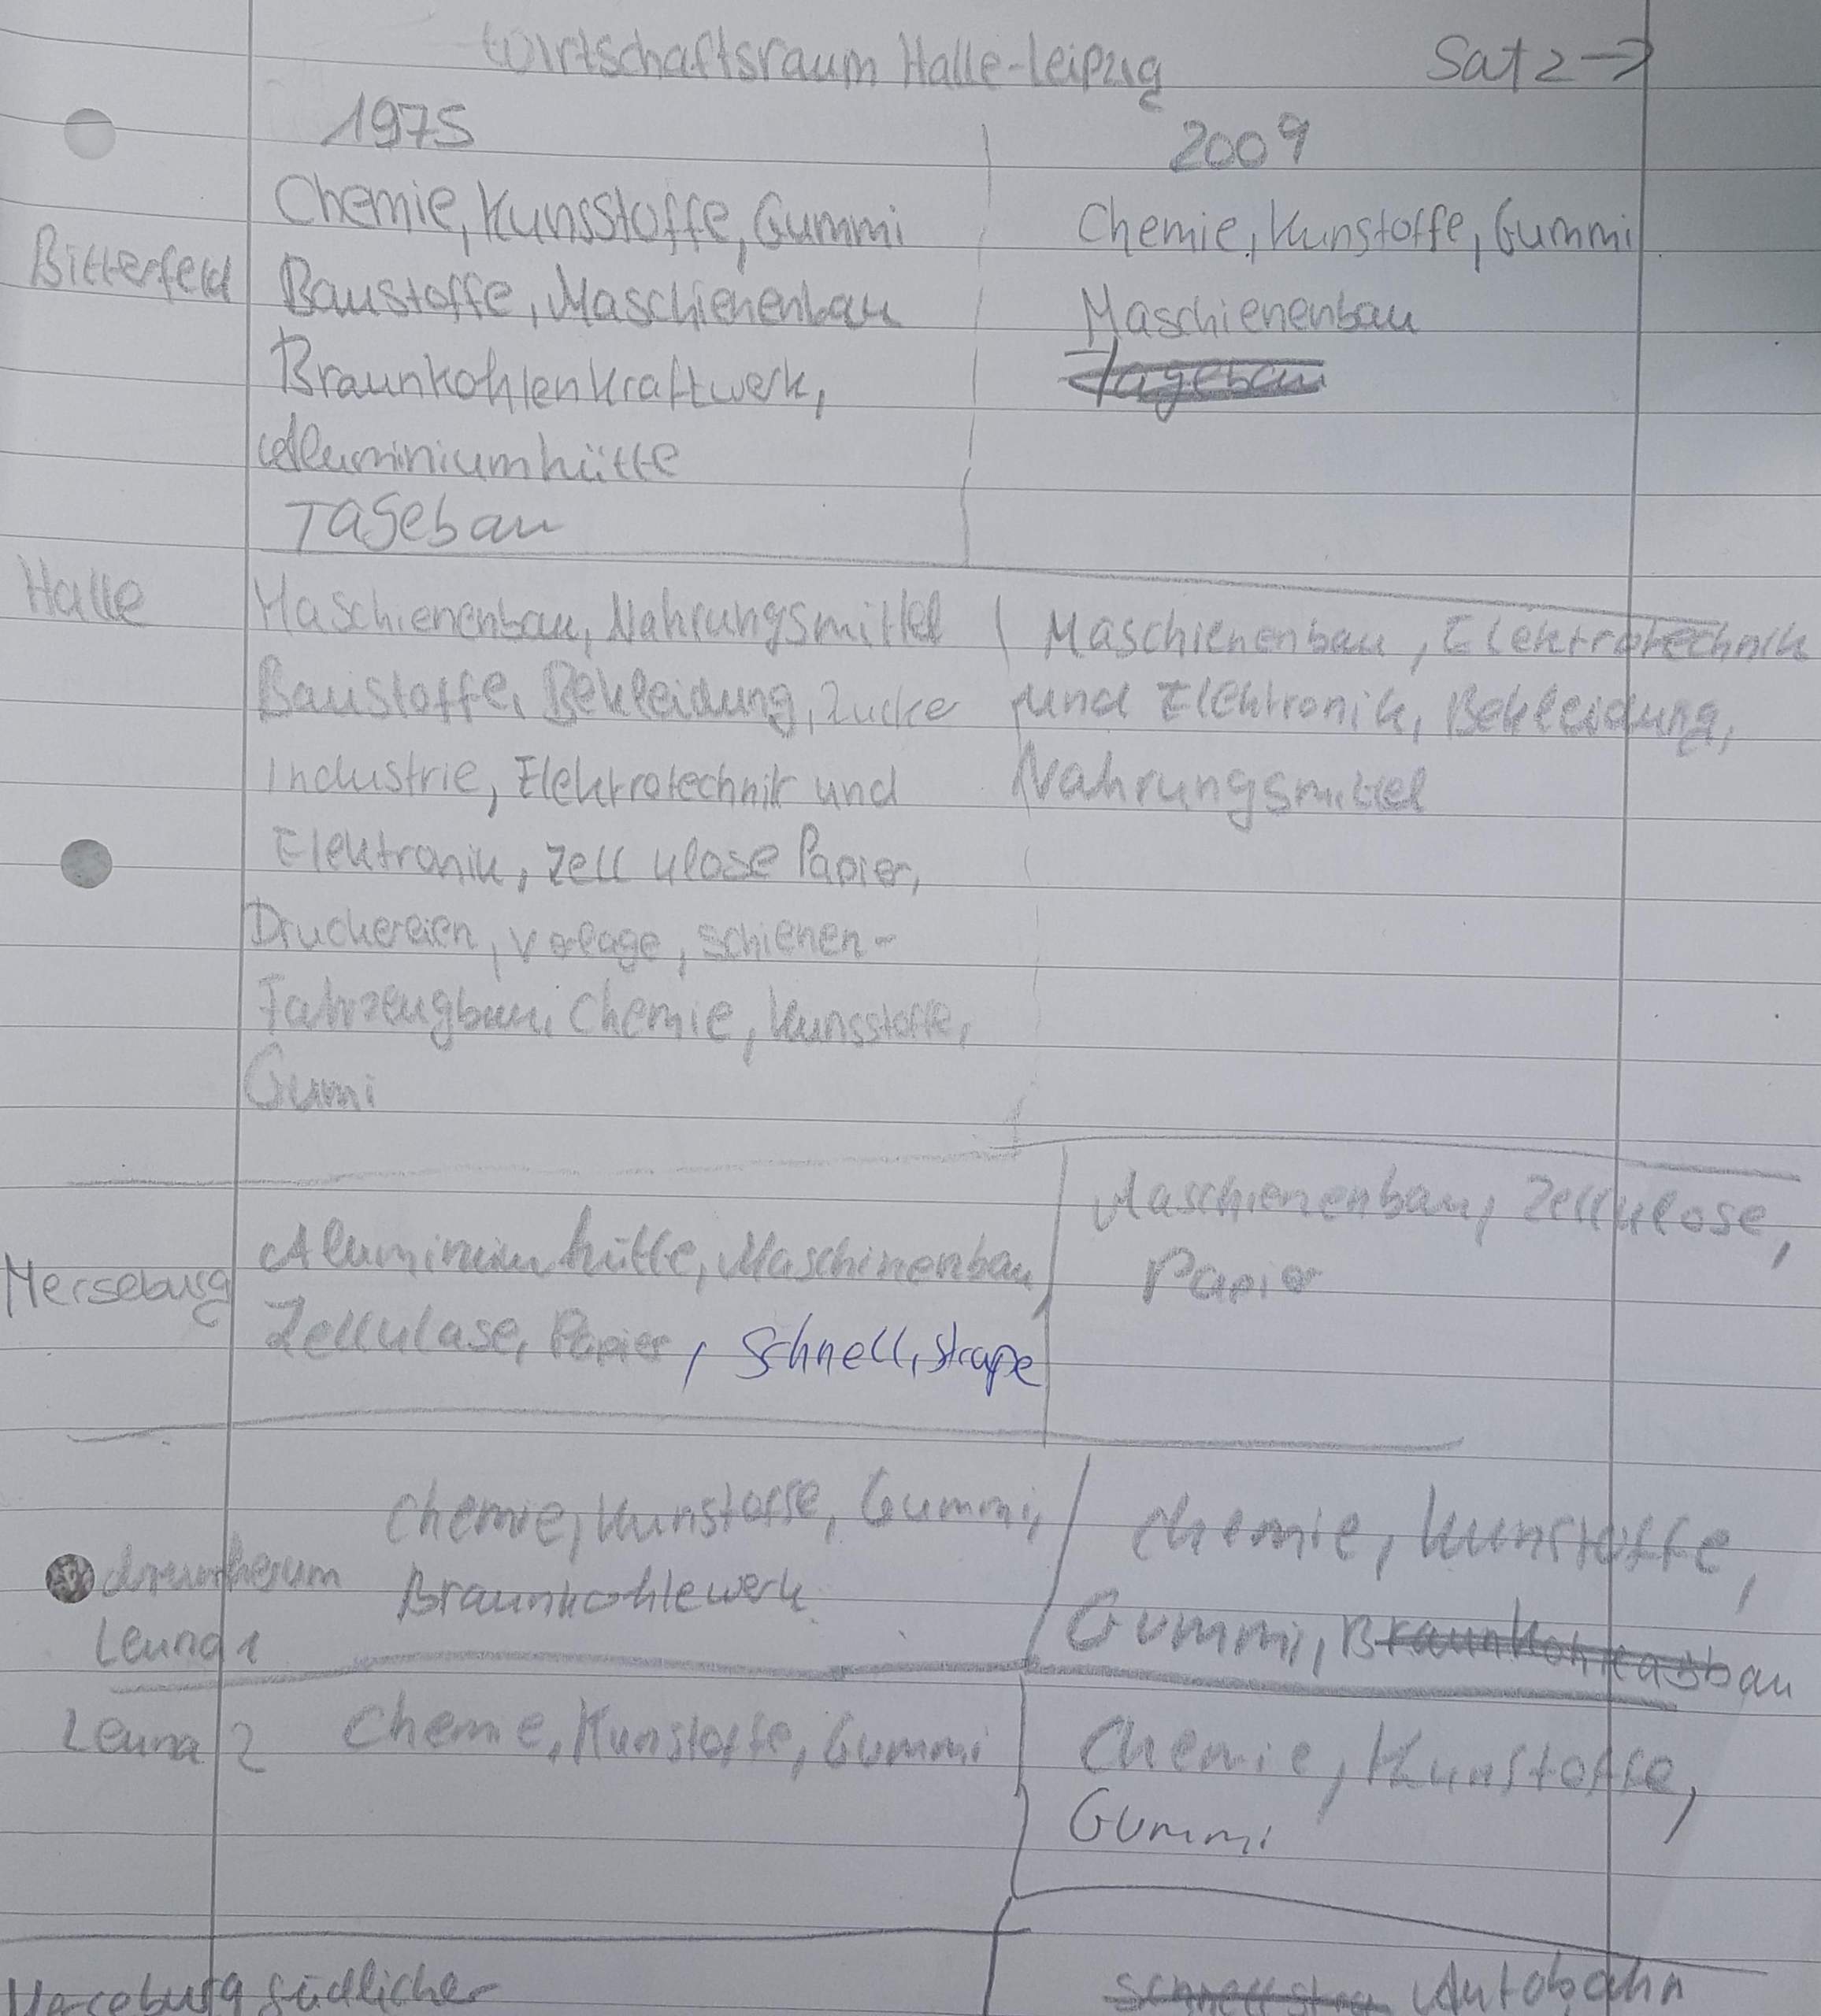 Wirtschaftsraum Halle-Leipzig Satz →
1975 2009
Chemie, Kunsstoffe, Gummi Chemie, Kunstoffe, Gummi
Bitterfeld Baustoffe, Maschienenbau Maschienenbau
Braunkohlenkraftwerk, Tagebau
Aluminiumhütte
Tagebau
Halle Maschienenbau, Nahrungsmittel Maschienenbau, Elektrotechnik
Baustoffe, Bekleidung, Zucker und Elektronik, Bekleidung,
Industrie, Elektrotechnik und Nahrungsmittel
Elektronik, Zell ulose Papier,
Druckereien, Verlage, schienen-
Fahrzeugbau, Chemie, Kunsstoffe,
Gumi
Maschienenbau, Zellulose,
Merseburg Aluminium hütte, Maschinenbau, Papier
Zellulase, Papier, Schnell, straße
Chemie, Kunstoffe, Gummi, Chemie, Kunstoffe,
Braunkohlewerk Gummi,
Leuna 1
Leuna 2 Chemie, Kunstoffe, Gummi Chemie, Kunstoffe,
Gummi
südlicher Autobahn